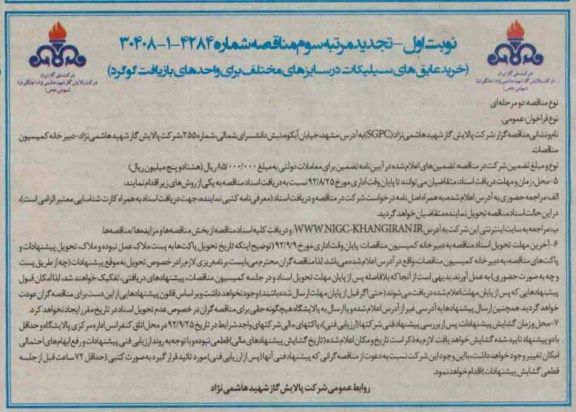 نوبت اول - تجدید مرتبه سوم مناقصه شماره ۴۲۸۴-۱-۳۰۴۰۸
(خرید عایق های سیلیکات در سایزهای مختلف برای واحدهای بازیافت گوگرد)
شرکت ملی گاز ایران
شرکت پالایش گاز شهید هاشمی نژاد (خانگیران)
(سهامی خاص)
شرکت ملی گاز ایران
شرکت پالایش گاز شهید هاشمی نژاد (خانگیران)
(سهامی خاص)
نوع مناقصه: دو مرحله ای
نوع فراخوان: عمومی
نام و نشانی مناقصه گزار: شرکت پالایش گاز شهید هاشمی نژاد (SGPC) به آدرس مشهد، خیابان آبکوه، نبش دانشسرای شمالی، شماره ۲۵۵، شرکت پالایش گاز شهید هاشمی نژاد - دبیرخانه کمیسیون
مناقصات.
نوع و مبلغ تضمین شرکت در مناقصه: تضمین های اعلام شده در آیین نامه تضمین برای معاملات دولتی به مبلغ ۸۵/۰۰۰/۰۰۰ ریال (هشتاد و پنج میلیون ریال)
۵- محل، زمان و مهلت دریافت اسناد: متقاضیان می توانند تا پایان وقت اداری مورخ ۹۲/۸/۲۵ نسبت به دریافت اسناد مناقصه به یکی از روش های زیر اقدام نمایند:
الف: مراجعه حضوری به آدرس اعلام شده، به همراه اصل نامه درخواست شرکت در مناقصه و دریافت اسناد (معرفی نامه کتبی نماینده، جهت دریافت اسناد به همراه کارت شناسایی معتبر الزامی است)،
در این حالت اسناد مناقصه تحویل نماینده متقاضیان خواهد گردید.
ب: مراجعه به سایت اینترنتی این شرکت به آدرس WWW.NIGC-KHANGIRAN.IR و دریافت کلیه اسناد مناقصه از بخش مناقصه ها و مزایده ها/مناقصه ها
۶- آخرین مهلت تحویل اسناد مناقصه به دبیرخانه کمیسیون مناقصات: پایان وقت اداری مورخ ۹۲/۹/۹ (توضیح اینکه تاریخ تحویل پاکت ها به پست ملاک عمل نبوده و ملاک تحویل پیشنهادات و
پاکت های مناقصه به دبیرخانه کمیسیون مناقصات واقع در آدرس اعلام شده می باشد لذا مناقصه گران محترم می بایست برنامه ریزی لازم را در خصوص تحویل به موقع پیشنهادات (چه از طریق پست
و چه به صورت حضوری) به عمل آورند. بدیهی است از آنجا که بلافاصله پس از پایان مهلت تحویل اسناد و در جلسه کمیسیون مناقصات، پیشنهادهای دریافتی، تفکیک خواهند شد، لذا امکان قبول
پیشنهادهایی که پس از پایان مهلت اعلام شده دریافت می شوند (حتی اگر قبل از پایان مهلت ارسال شده باشند) وجود نخواهد داشت و بر اساس قانون پیشنهادهایی از این دست برای مناقصه گران عودت
خواهد گردید. همچنین ارسال پیشنهادها به آدرس غیر از آدرس اعلام شده و یا ارسال به پالایشگاه هیچگونه حقی برای مناقصه گران در خصوص عدم تحویل اسناد در تاریخ مقرر ایجاد نخواهد کرد.
۷- محل و زمان گشایش پیشنهادات: پس از بررسی پیشنهاد فنی شرکتها (ارزیابی فنی)، پاکتهای مالی شرکتهای واجد شرایط در تاریخ ۹۲/۹/۲۵ در محل اتاق کنفرانس اداره مرکزی پالایشگاه و حداقل
با دو پیشنهاد تایید شده گشایش خواهد یافت. لازم به ذکر است تاریخ و مکان اعلام شده (تاریخ گشایش پیشنهادهای مالی) قطعی نبوده و با توجه به روند ارزیابی فنی پیشنهادات و رفع ابهام های احتمالی
امکان تغییر وجود خواهد داشت. با این وجود این شرکت نسبت به دعوت از مناقصه گرانی که پیشنهاد فنی آنها (پس از ارزیابی فنی) مورد تائید قرار گیرد به صورت کتبی (حداقل ۷۲ ساعت قبل از جلسه
قطعی گشایش پیشنهادات) اقدام خواهد نمود.
روابط عمومی شرکت پالایش گاز شهید هاشمی نژاد